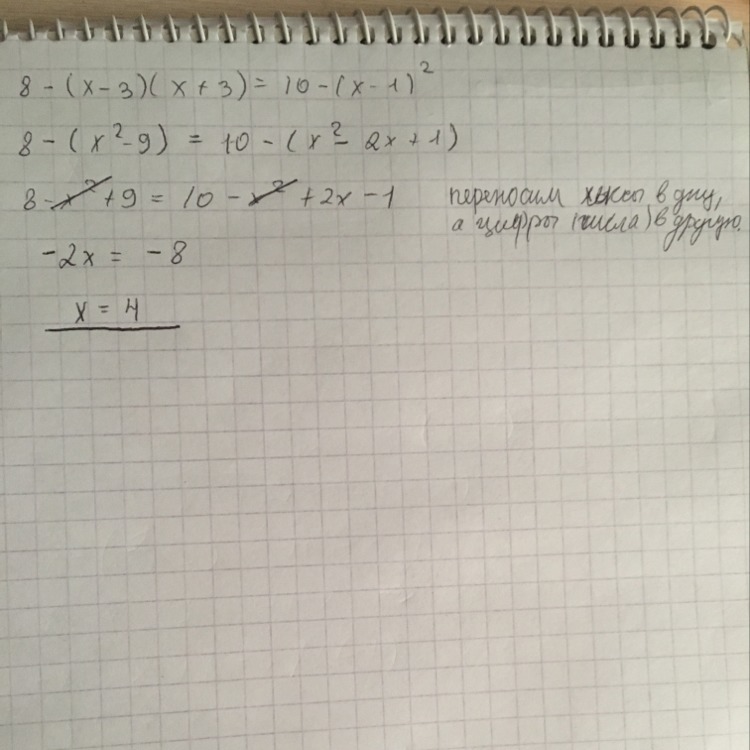 8 - (x - 3)(x + 3) = 10 - (x - 1)²
8 - (x² - 9) = 10 - (x² - 2x + 1)
8 - x² + 9 = 10 - x² + 2x - 1
переносим иксы в одну,
а цифры (числа) в другую.
-2x = -8
x = 4